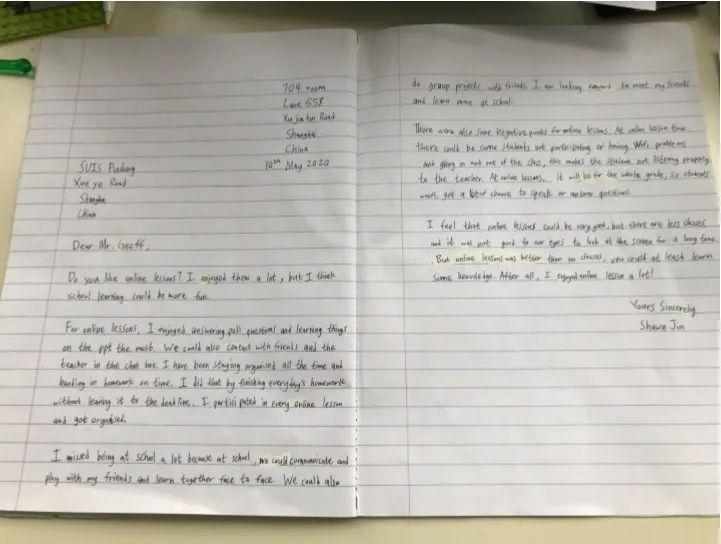 704 room
Lane 558
Xu jia hui Road
Shanghai
China
10th May 2020
SUIS Pudong
Xue ye Road
Shanghai
China
Dear Mr. Geoff,
Do you like online lessons? I enjoyed them a lot, but I think
school learning could be more fun.
For online lessons, I enjoyed answering poll questions and learning things
on the ppt the most. We could also contact with friends and the
teacher in the chat box. I have been staying organised all the time and
handing in homework on time. I did that by finishing everyday's homework
without leaving it to the deadline. I participated in every online lesson
and got organised.
I missed being at school a lot because at school, we could communicate and
play with my friends and learn together face to face. We could also
do group projects with friends. I am looking forward to meet my friends
and learn more at school.
There were also some negative points for online lessons. At online lesson time,
there could be some students not participating or having Wifi problems
and going in and out of the class, this makes the students not listening properly
to the teacher. At online lessons, it will be for the whole grade, so students
won't get a lot of chance to speak or answer questions.
I feel that online lessons could be very good, but there are less classes
and it was not good to our eyes to look at the screen for a long time.
But online lessons was better than no classes, you could at least learn
some knowledge. After all, I enjoyed online lesson a lot!
Yours Sincerely
Shawn Jin